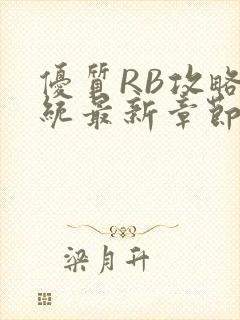 優質RB攻略
統最新章節
梁月升